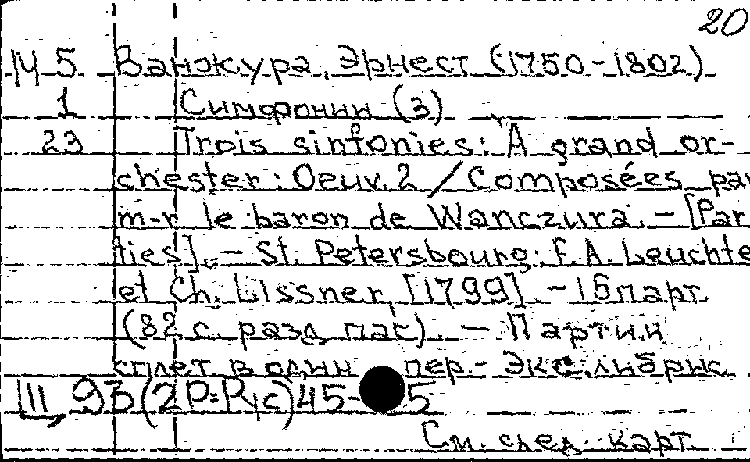 20
М 5 Ванжура, Эрнест (1750-1802)
1 Симфонии (3)
23 Trois sinfonies: A grand or-
chester: Oeuv. 2 / Composées par
m-r le baron de Wanczura. - [Par
ties]. - St. Petersbourg: F. A. Leuchte
et Ch. Lissner, [1799]. - 15 парт.
(82 с. разд. паг). - Партии
сплет. в один пер. - Экслибрис
III, 93 (2P=P/c) 45- 5
См. след. карт.